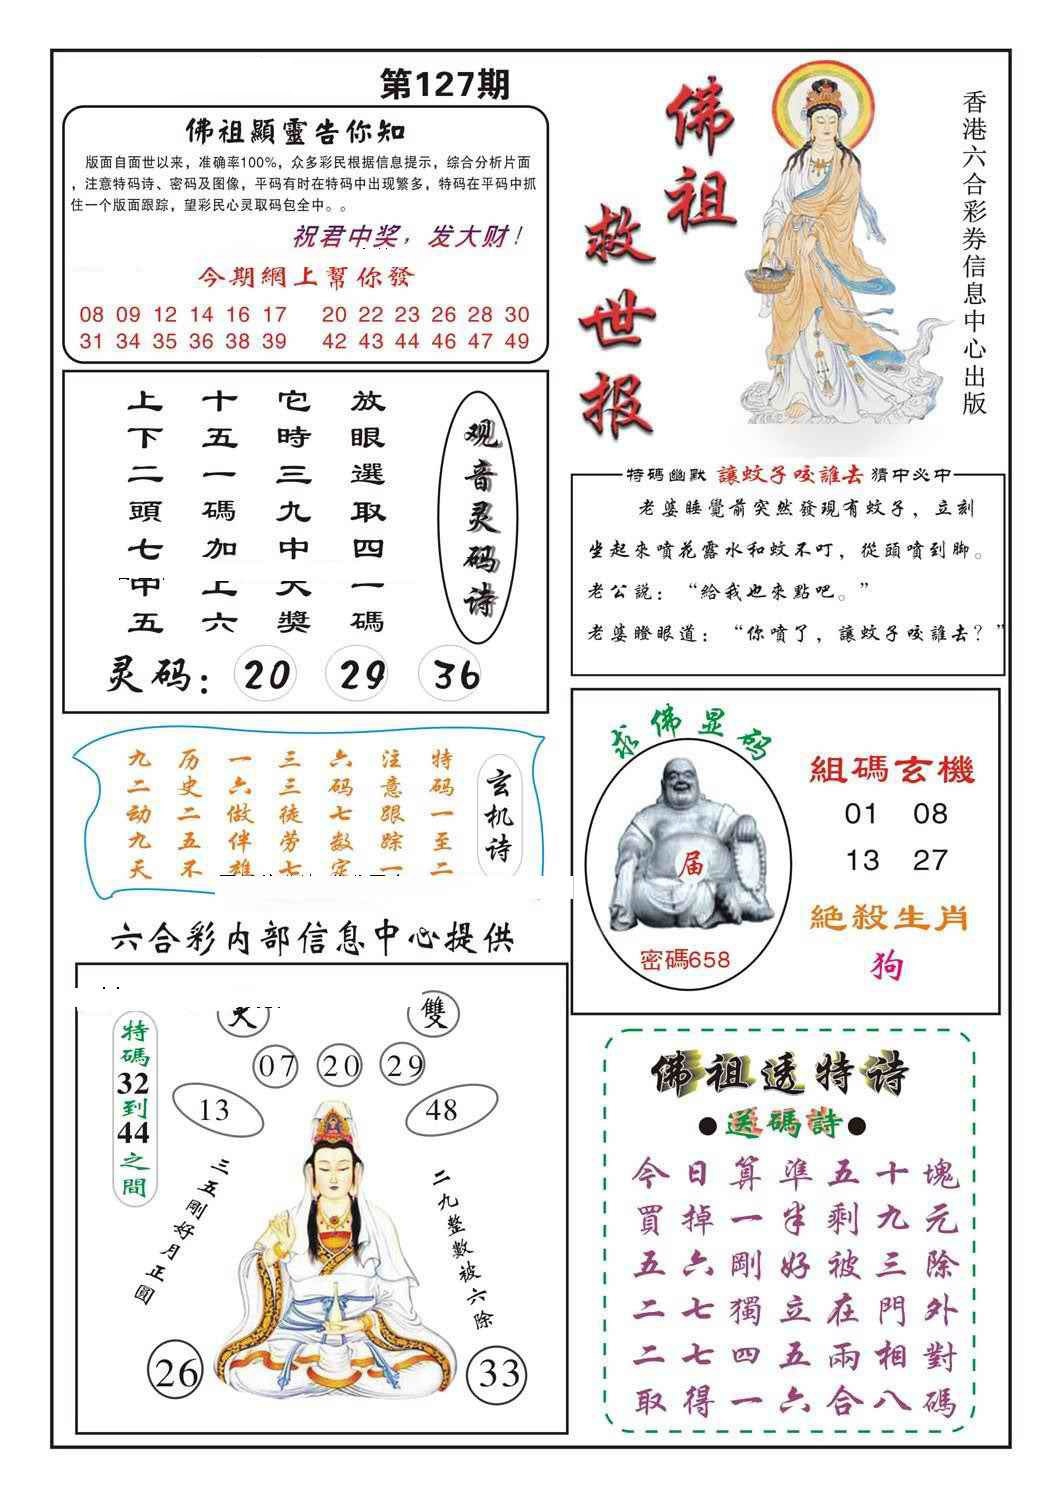 第127期
佛祖顯靈告你知
版面自面世以来，准确率100%，众多彩民根据信息提示，综合分析片面
，注意特码诗、密码及图像，平码有时在特码中出现繁多，特码在平码中抓
住一个版面跟踪，望彩民心灵取码包全中。。
祝君中奖，发大财！
今期網上幫你發
08 09 12 14 16 17 20 22 23 26 28 30
31 34 35 36 38 39 42 43 44 46 47 49
佛祖
救世报
香港六合彩券信息中心出版
观音灵码诗
放眼選取四一碼
它時三九中天獎
十五一碼加上六
上下二頭七中五
灵码：20 29 36
特碼幽默 讓蚊子咬誰去 猜中必中
老婆睡覺前突然發現有蚊子，立刻
坐起來噴花露水和蚊不叮，從頭噴到脚。
老公説：“給我也來點吧。”
老婆瞪眼道：“你噴了，讓蚊子咬誰去？”
玄机诗
特码一至二
注意跟踪一
六码七数定
三三徒劳七
一六做伴雄
历史二五不
九二动九天
求佛显码
届
密碼658
組碼玄機
01 08
13 27
絶殺生肖
狗
六合彩内部信息中心提供
雙
07 20 29
13 48
特碼32到44之間
三五剛好月正圓
二九整數被六除
26 33
佛祖透特诗
●送碼詩●
今日算準五十塊
買掉一半剩九元
五六剛好被三除
二七獨立在門外
二七四五兩相對
取得一六合八碼